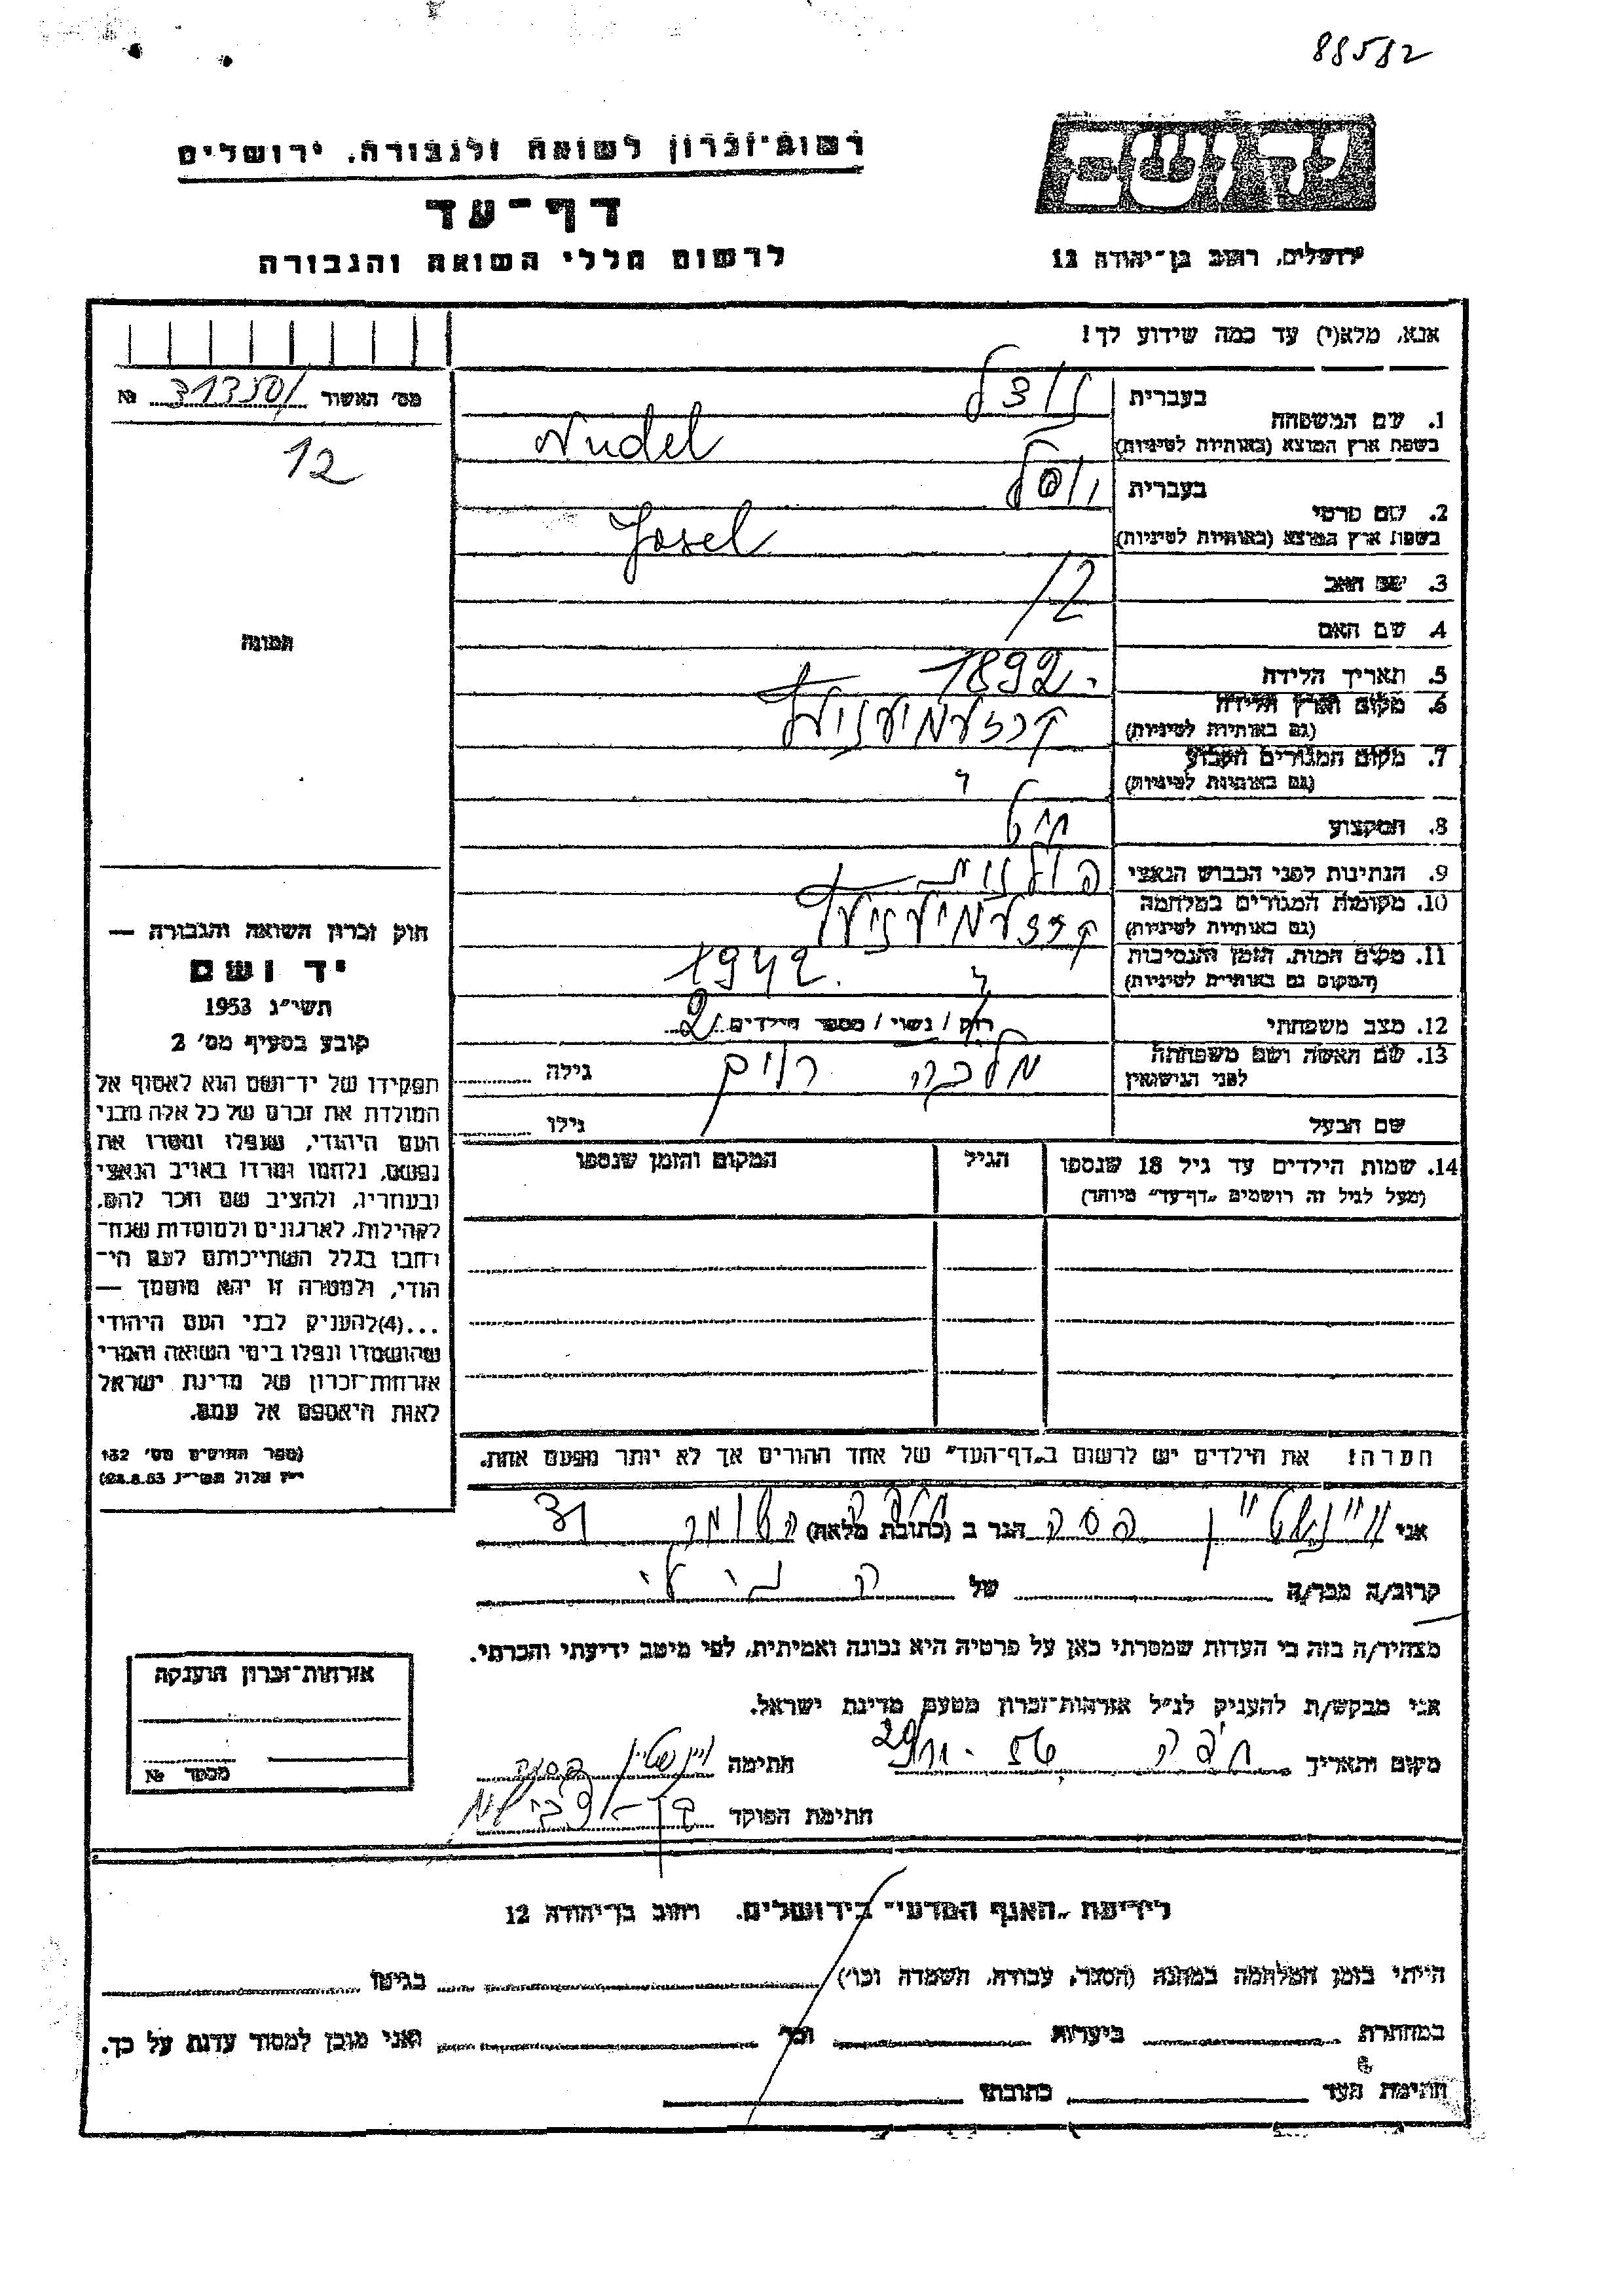 88582
רשות-זכרון לשואה ולגבורה, ירושלים
דף-עד
לרשום חללי השואה והגבורה
יד ושם
ירושלים, רחוב בן-יהודה 12
אנא, מלא(י) עד כמה שידוע לך!
מס' האשור 31350/ №
12
תמונה
1. שם המשפחה
בעברית נודל
בשפת ארץ המוצא (באותיות לטיניות) Nudel
2. שם פרטי
בעברית יוסל
בשפת ארץ המוצא (באותיות לטיניות) Josel
3. שם האב
4. שם האם
5. תאריך הלידה 1892.
6. מקום וארץ הלידה קרזעמיעניעץ
(גם באותיות לטיניות)
7. מקום המגורים הקבוע
(גם באותיות לטיניות)
8. המקצוע חיט
9. הנתינות לפני הכבוש הנאצי פולנית
10. מקומות המגורים במלחמה קרזעמיעניעץ
(גם באותיות לטיניות)
11. מקום המות, הזמן והנסיבות 1942.
(המקום גם באותיות לטיניות)
12. מצב משפחתי רוק / נשוי / מספר הילדים 2
13. שם האשה ושם משפחתה מלכה גילה
לפני הנישואין
שם הבעל גילו
14. שמות הילדים עד גיל 18 שנספו הגיל המקום והזמן שנספו
(מעל לגיל זה רושמים "דף-עד" מיוחד)
חוק זכרון השואה והגבורה —
יד ושם
תשי"ג 1953
קובע בסעיף מס' 2
תפקידו של יד-ושם הוא לאסוף אל
המולדת את זכרם של כל אלה מבני
העם היהודי, שנפלו ומסרו את
נפשם, נלחמו ומרדו באויב הנאצי
ובעוזריו, ולהציב שם וזכר להם,
לקהילות, לארגונים ולמוסדות שנח-
רחבו בגלל השתייכותם לעם הי-
הודי, ולמטרה זו יהא מוסמך —
...(4)להעניק לבני העם היהודי
שהושמדו ונפלו בימי השואה והמרי
אזרחות-זכרון של מדינת ישראל
לאות היאספם אל עמם.
(ספר החוקים מס' 132
י"ז אלול תשי"ג 28.8.53)
הערה! את הילדים יש לרשום ב"דף-העד" של אחד ההורים אך לא יותר מפעם אחת.
אני ויינשטיין פסה הגר ב (כתובת מלאה) השומר 31
קרוב/ה מכר/ה של
מצהיר/ה בזה כי העדות שמסרתי כאן על פרטיה היא נכונה ואמיתית, לפי מיטב ידיעתי והכרתי.
אני מבקש/ת להעניק לנ"ל אזרחות-זכרון מטעם מדינת ישראל.
מקום ותאריך חיפה חתימה ויינשטיין פסה
חתימת הפוקד
אזרחות-זכרון הוענקה
מספר №
לידיעת "האגף המדעי" בירושלים, רחוב בן-יהודה 12
הייתי בזמן המלחמה במחנה (הסגר, עבודה, השמדה וכו') בגיטו
במחתרת ביערות וכו' ואני מוכן למסור עדות על כך.
חתימת העד כתובתו